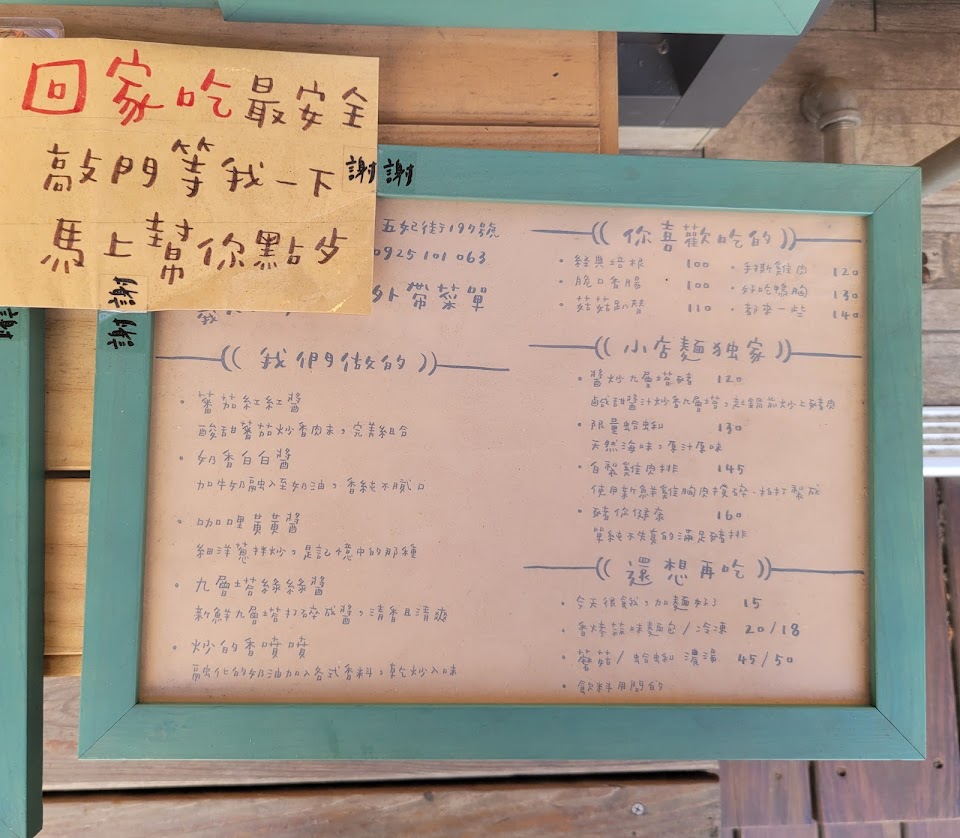 回家吃最安全
敲門等我一下
謝謝
馬上幫你點ㄉ
謝謝
五妃街197號
0925 101 063
外帶菜單
我
(( 我們做的 ))
• 蕃茄紅紅醬
酸甜蕃茄炒香肉末，完美組合
• 奶香白白醬
加牛奶融入至奶油，香純不膩口
• 咖哩黃黃醬
細洋蔥拌炒，是記憶中的那種
• 九層塔絲絲醬
新鮮九層塔打碎成醬，清香且清爽
• 炒的香噴噴
融化的奶油加入各式香料，乾炒入味
(( 你喜歡吃的 ))
• 經典培根 100 • 手撕雞肉 120
• 脆口香腸 100 • 好吃鴨胸 130
• 菇菇趴替 110 • 都來一些 140
(( 小店麵独家 ))
• 醬炒九層塔豬 120
鹹甜醬汁炒香九層塔，起鍋前炒上豬肉
• 限量蛤蜊 130
天然海味，原汁原味
• 自製雞肉排 145
使用新鮮雞胸肉 製成
• 豬你健康 160
單純不失真的滿足豬排
(( 還想再吃 ))
• 今天很餓，加麵好了 15
• 香烤蒜味麵包 / 冷凍 20/18
• 蘑菇 / 蛤蜊 濃湯 45/50
• 飲料用問的